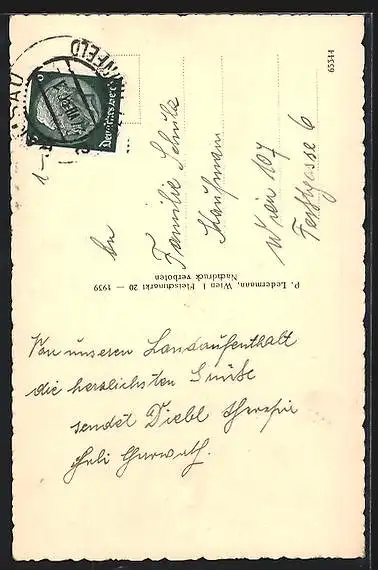 65544
Deutsches Reich
An
Familie Schulz
Kaufmann
Wien 107
6
P. Ledermann, Wien I Fleischmarkt 20 — 1939
Nachdruck verboten
Von unseren Landaufenthalt
die herzlichsten Grüße
sendet